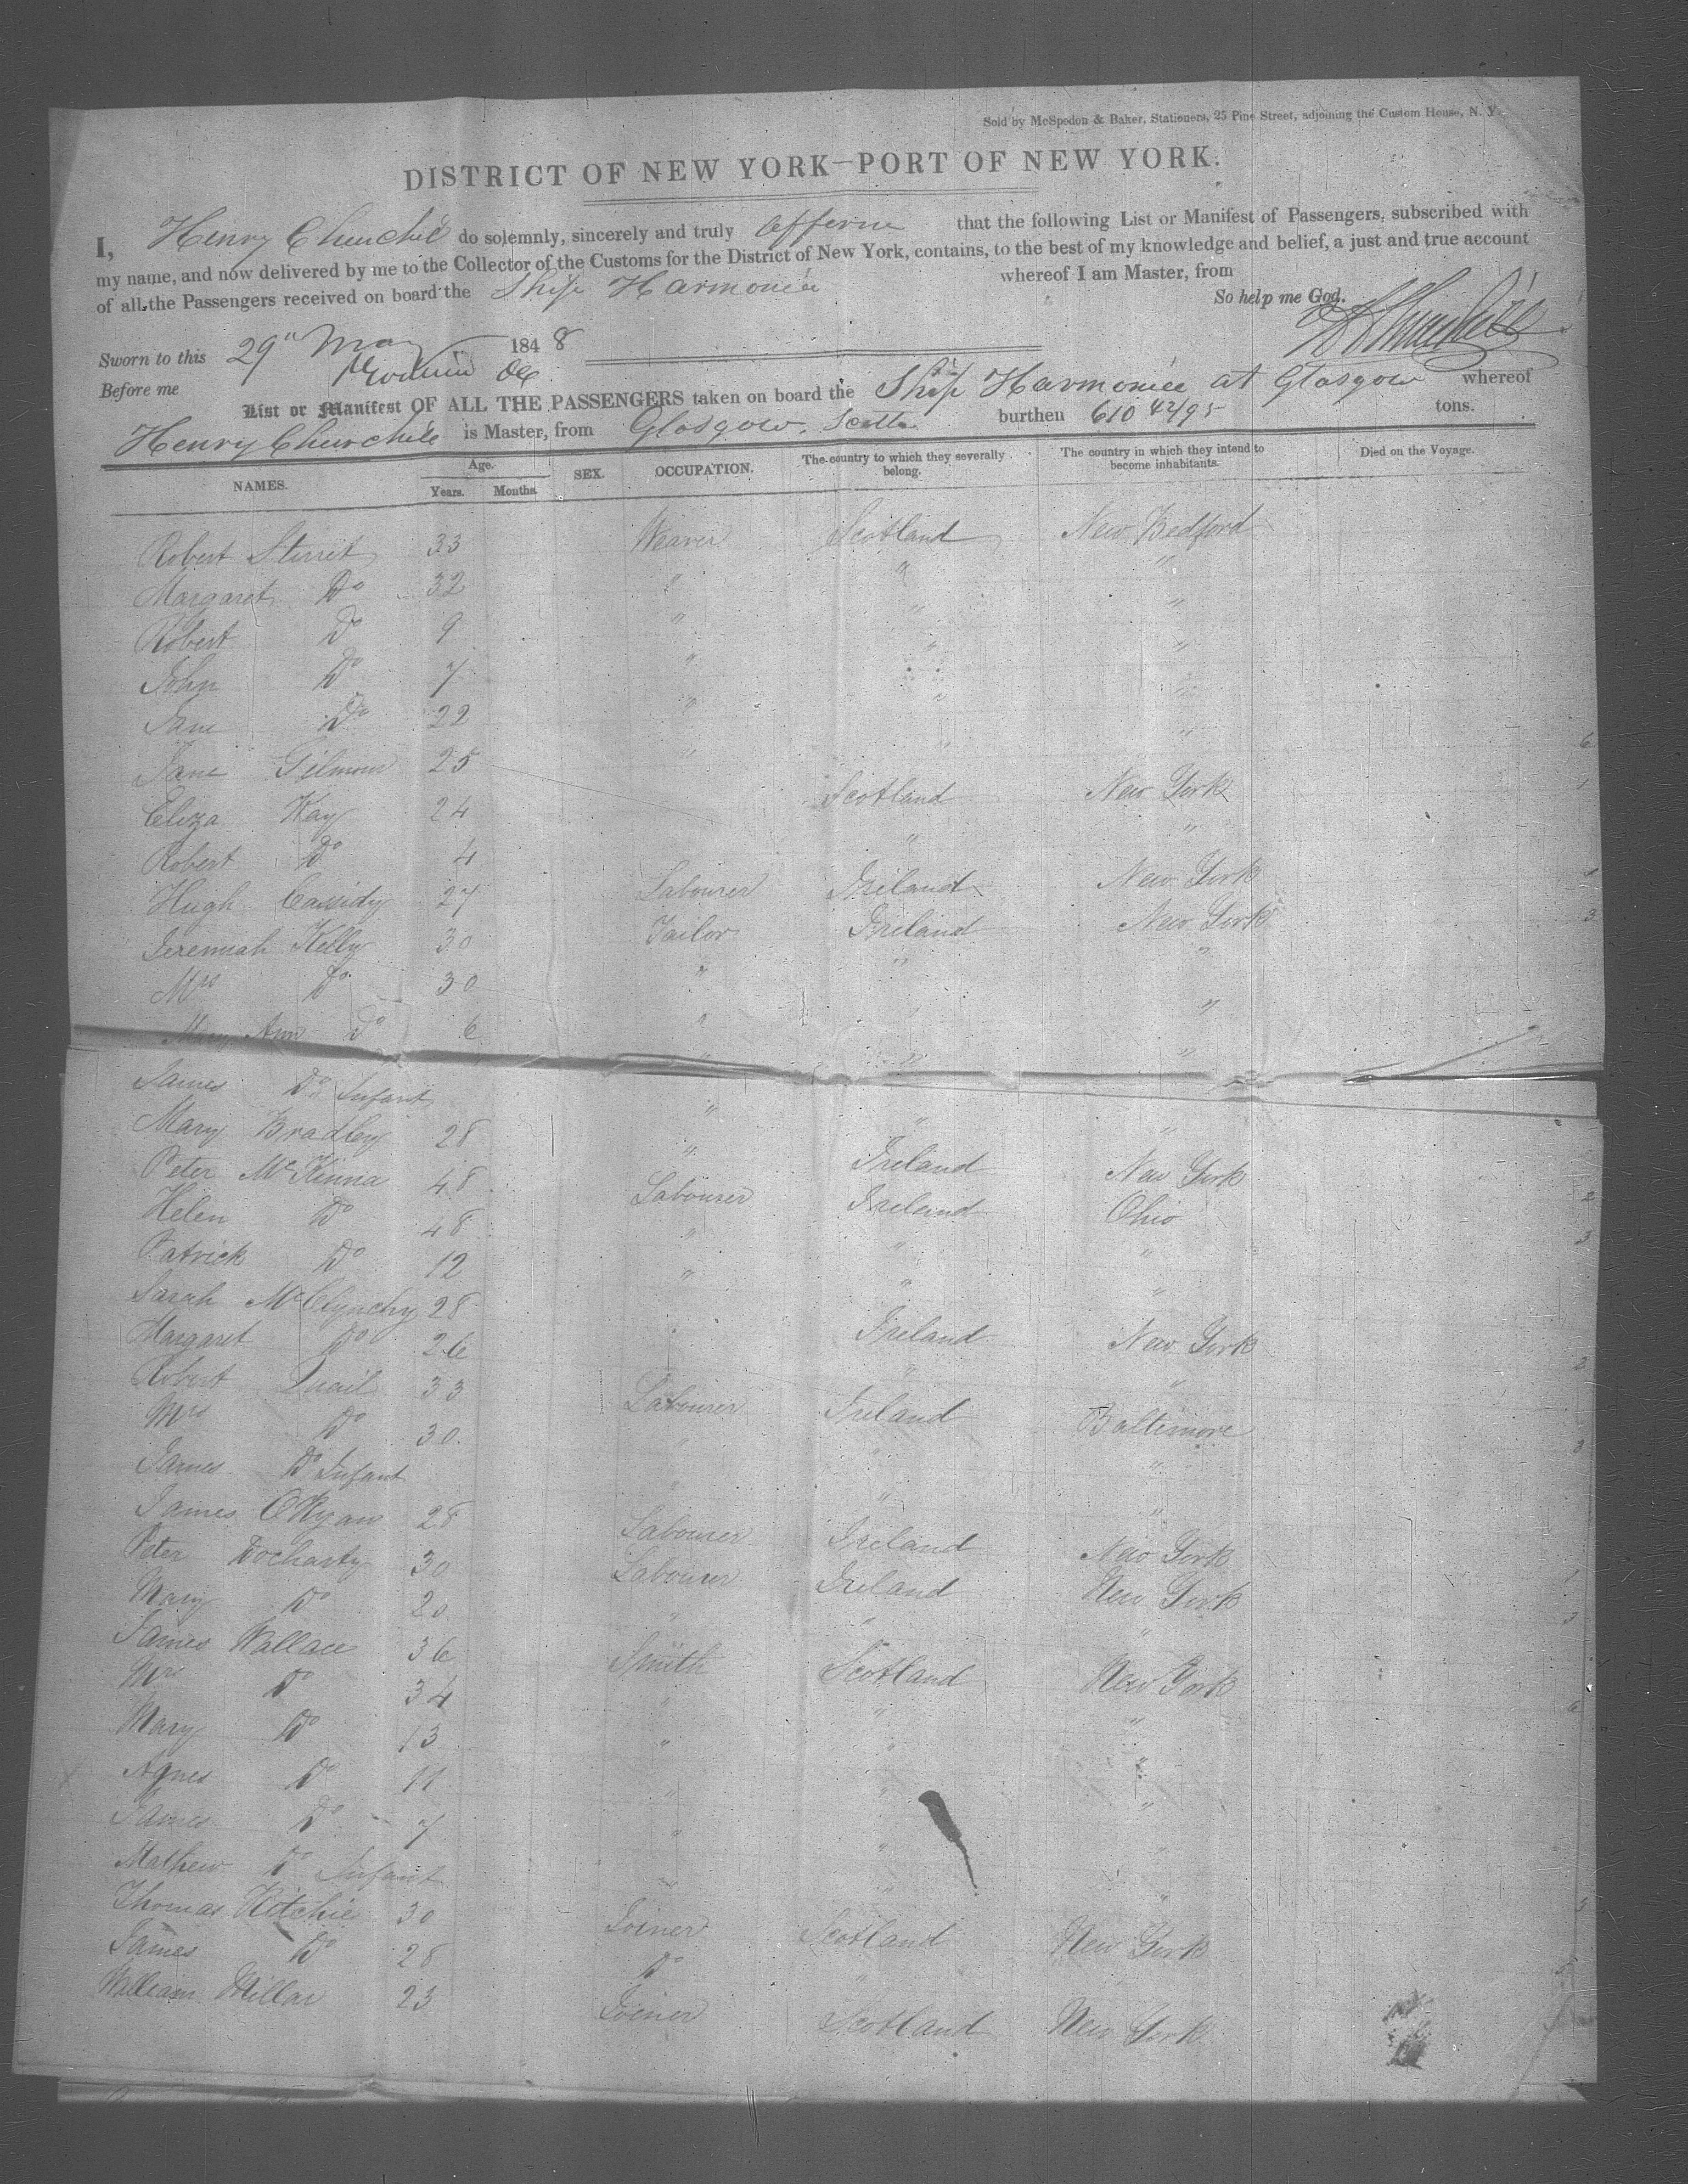 Sold by McSpedon & Baker, Stationers, 25 Pine Street, adjoining the Custom House, N. Y.
DISTRICT OF NEW YORK—PORT OF NEW YORK.
I, Henry Churchill do solemnly, sincerely and truly affirm that the following List or Manifest of Passengers, subscribed with
my name, and now delivered by me to the Collector of the Customs for the District of New York, contains, to the best of my knowledge and belief, a just and true account
of all the Passengers received on board the Ship Harmonia whereof I am Master, from
So help me God.
Sworn to this 29th May 1848
Before me
List or Manifest OF ALL THE PASSENGERS taken on board the Ship Harmonia at Glasgow whereof
Henry Churchill is Master, from Glasgow, burthen 610 42/95 tons.
NAMES. Age. Years. Months. SEX. OCCUPATION. The country to which they severally belong. The country in which they intend to become inhabitants. Died on the Voyage.
Robert Sterret 33 Weaver Scotland New Bedford
Margaret Do 32 " " "
Robert Do 9 " " "
John Do 7 " " "
Jane Do 22 " " "
Jane Gilmour 25 " " " 6
Eliza Kay 24 Scotland New York 1
Robert Do 4 " "
Hugh Cassidy 27 Labourer Ireland New York 1
Jeremiah Kelly 30 Tailor Ireland New York 3
Mrs Do 30 " " "
Mary Ann Do 6 " "
James Do Infant " " "
Mary Bradley 28 " Ireland New York
Peter McKinna 48 Labourer Ireland Ohio 2
Helen Do 48 " " " 3
Patrick Do 12 " " "
Sarah McClynchy 28 Ireland New York
Margaret Do 26 " " 2
Robert Quail 33 Labourer Ireland Baltimore
Mrs Do 30 " " " 3
James Do Infant " " "
James ORyan 28 Labourer Ireland New York
Peter Docharty 30 Labourer Ireland New York 1
Mary Do 20 " " "
James Wallace 36 Smith Scotland New York
Mrs Do 34 " " " 6
Mary Do 13 " " "
Agnes Do 11 " " "
James Do 7 " " "
Mathew Do Infant " " "
Thomas Ritchie 30 Joiner Scotland New York
James Do 28 Do "
William Millar 23 Joiner Scotland New York